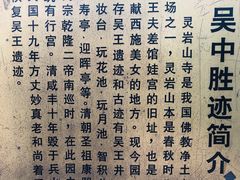 吴中胜迹简介
灵岩山寺是我国佛教净土
场之一，灵岩山本是春秋时
王夫差馆娃宫的旧址，也是
献西施美女的地方。现今园
存吴王遗迹和古迹有吴王井
妆台·玩花池·玩月池 智积
寿亭·迎晖亭等。清朝圣祖康
宗乾隆二帝南巡时，在此园
筑行宫。清咸丰十年毁于兵
四十九年方丈妙真老和尚着
恢复吴王遗迹。